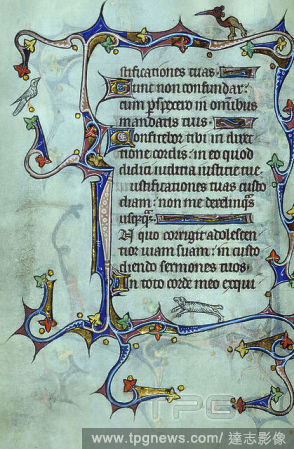 stificationes tuas.
Tunc non confundar:
cum perspexero in omnibus
mandatis tuis.
Confitebor tibi in direc
tione cordis: in eo quod
didici iudicia iusticie tue.
iustificationes tuas custo
diam: non me derelinqas
usqꝫqꝫ.
In quo corrigit adolescen
tior viam suam: in custo
diendo sermones tuos.
In toto corde meo exqui
TPG
www.tpgnews.com / 達志影像